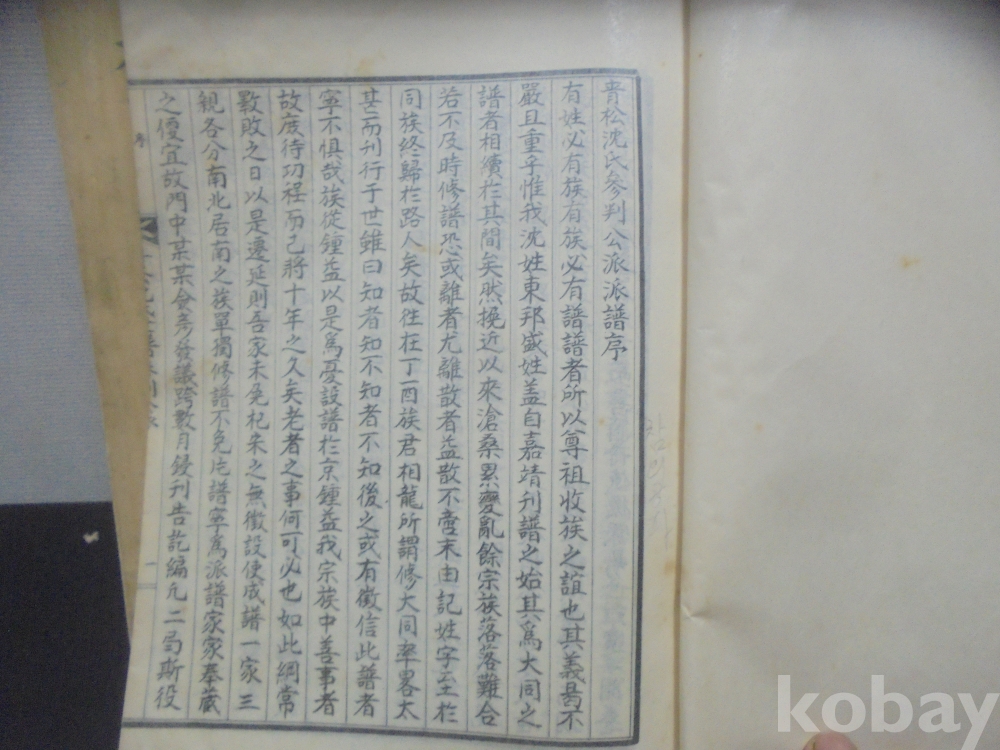 青松沈氏參判公派派譜序
有姓必有族有族必有譜譜者所以尊祖收族之誼也其義曷不
嚴且重乎惟我沈姓東邦盛姓盖自嘉靖刊譜之始其爲大同之
譜者相續於其間矣然挽近以來滄桑累變亂餘宗族落落難合
若不及時修譜恐或離者尤離散者益散不啻末由記姓字至於
同族終歸於路人矣故往在丁酉族君相龍所謂修大同率畧太
甚而刊行于世雖曰知者知不知者不知後之或有徵信此譜者
寧不惧哉族從鍾益以是爲憂設譜於京鍾益我宗族中善事者
故庶待功程而已將十年之久矣老者之事何可必也如此綱常
斁敗之日以是遷延則吾家未免杞宋之無徵設使成譜一家三
親各分南北居南之族單獨修譜不免片譜寧爲派譜家家奉藏
之便宜故門中某某會彦發議跨數月鋟刊告訖編凡二局斯役
序
一
kobay